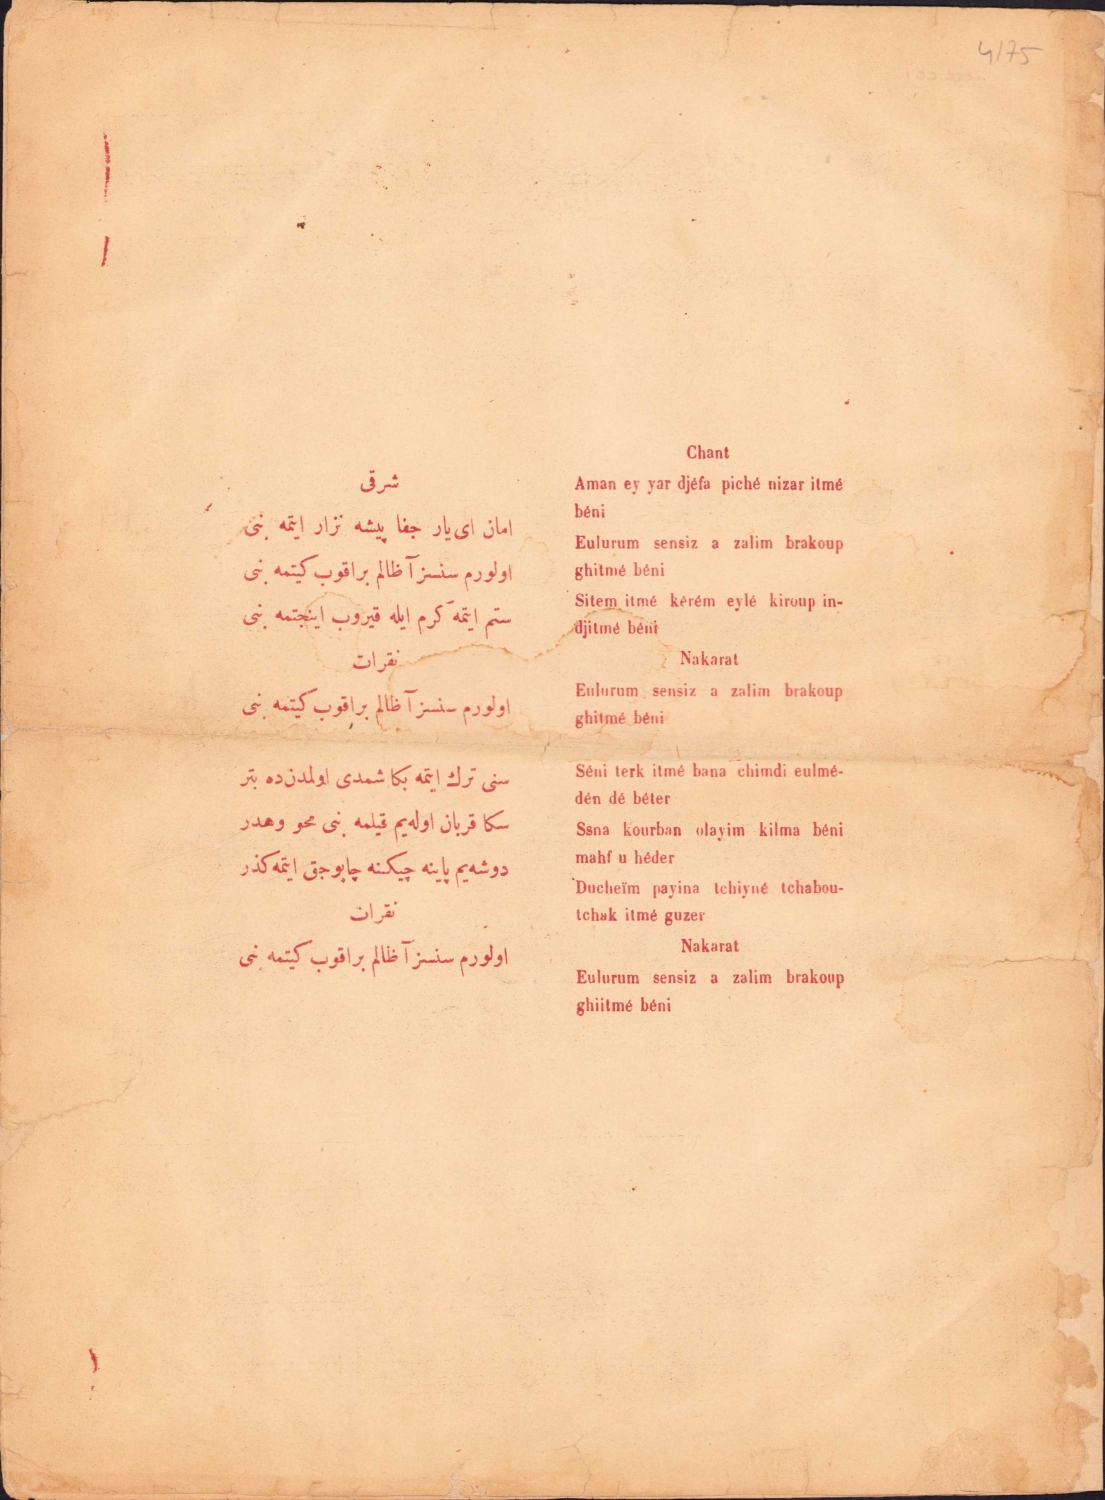 4175
شرقی
امان ای یار جفا پیشه نزار ایتمه بنی
اولورم سنسز آ ظالم براقوب کیتمه بنی
ستم ایتمه کرم ایله قیروب اینجتمه بنی
نقرات
اولورم سنسز آ ظالم براقوب کیتمه بنی
سنی ترك ایتمه بکا شمدی اولمدن ده بتر
سکا قربان اوله یم قیلمه بنی محو وهدر
دوشه یم پاینه چیکنه چابوجق ایتمه کذر
نقرات
اولورم سنسز آ ظالم براقوب کیتمه بنی
Chant
Aman ey yar djéfa piché nizar itmé
béni
Eulurum sensiz a zalim brakoup
ghitmé béni
Sitem itmé kérém eylé kiroup in-
djitmé béni
Nakarat
Eulurum sensiz a zalim brakoup
ghitmé béni
Séni terk itmé bana chimdi eulmé-
dén dé béter
Ssna kourban olayim kilma béni
mahf u héder
Ducheïm payina tchiyné tchabou-
tchak itmé guzer
Nakarat
Eulurum sensiz a zalim brakoup
ghiitmé béni